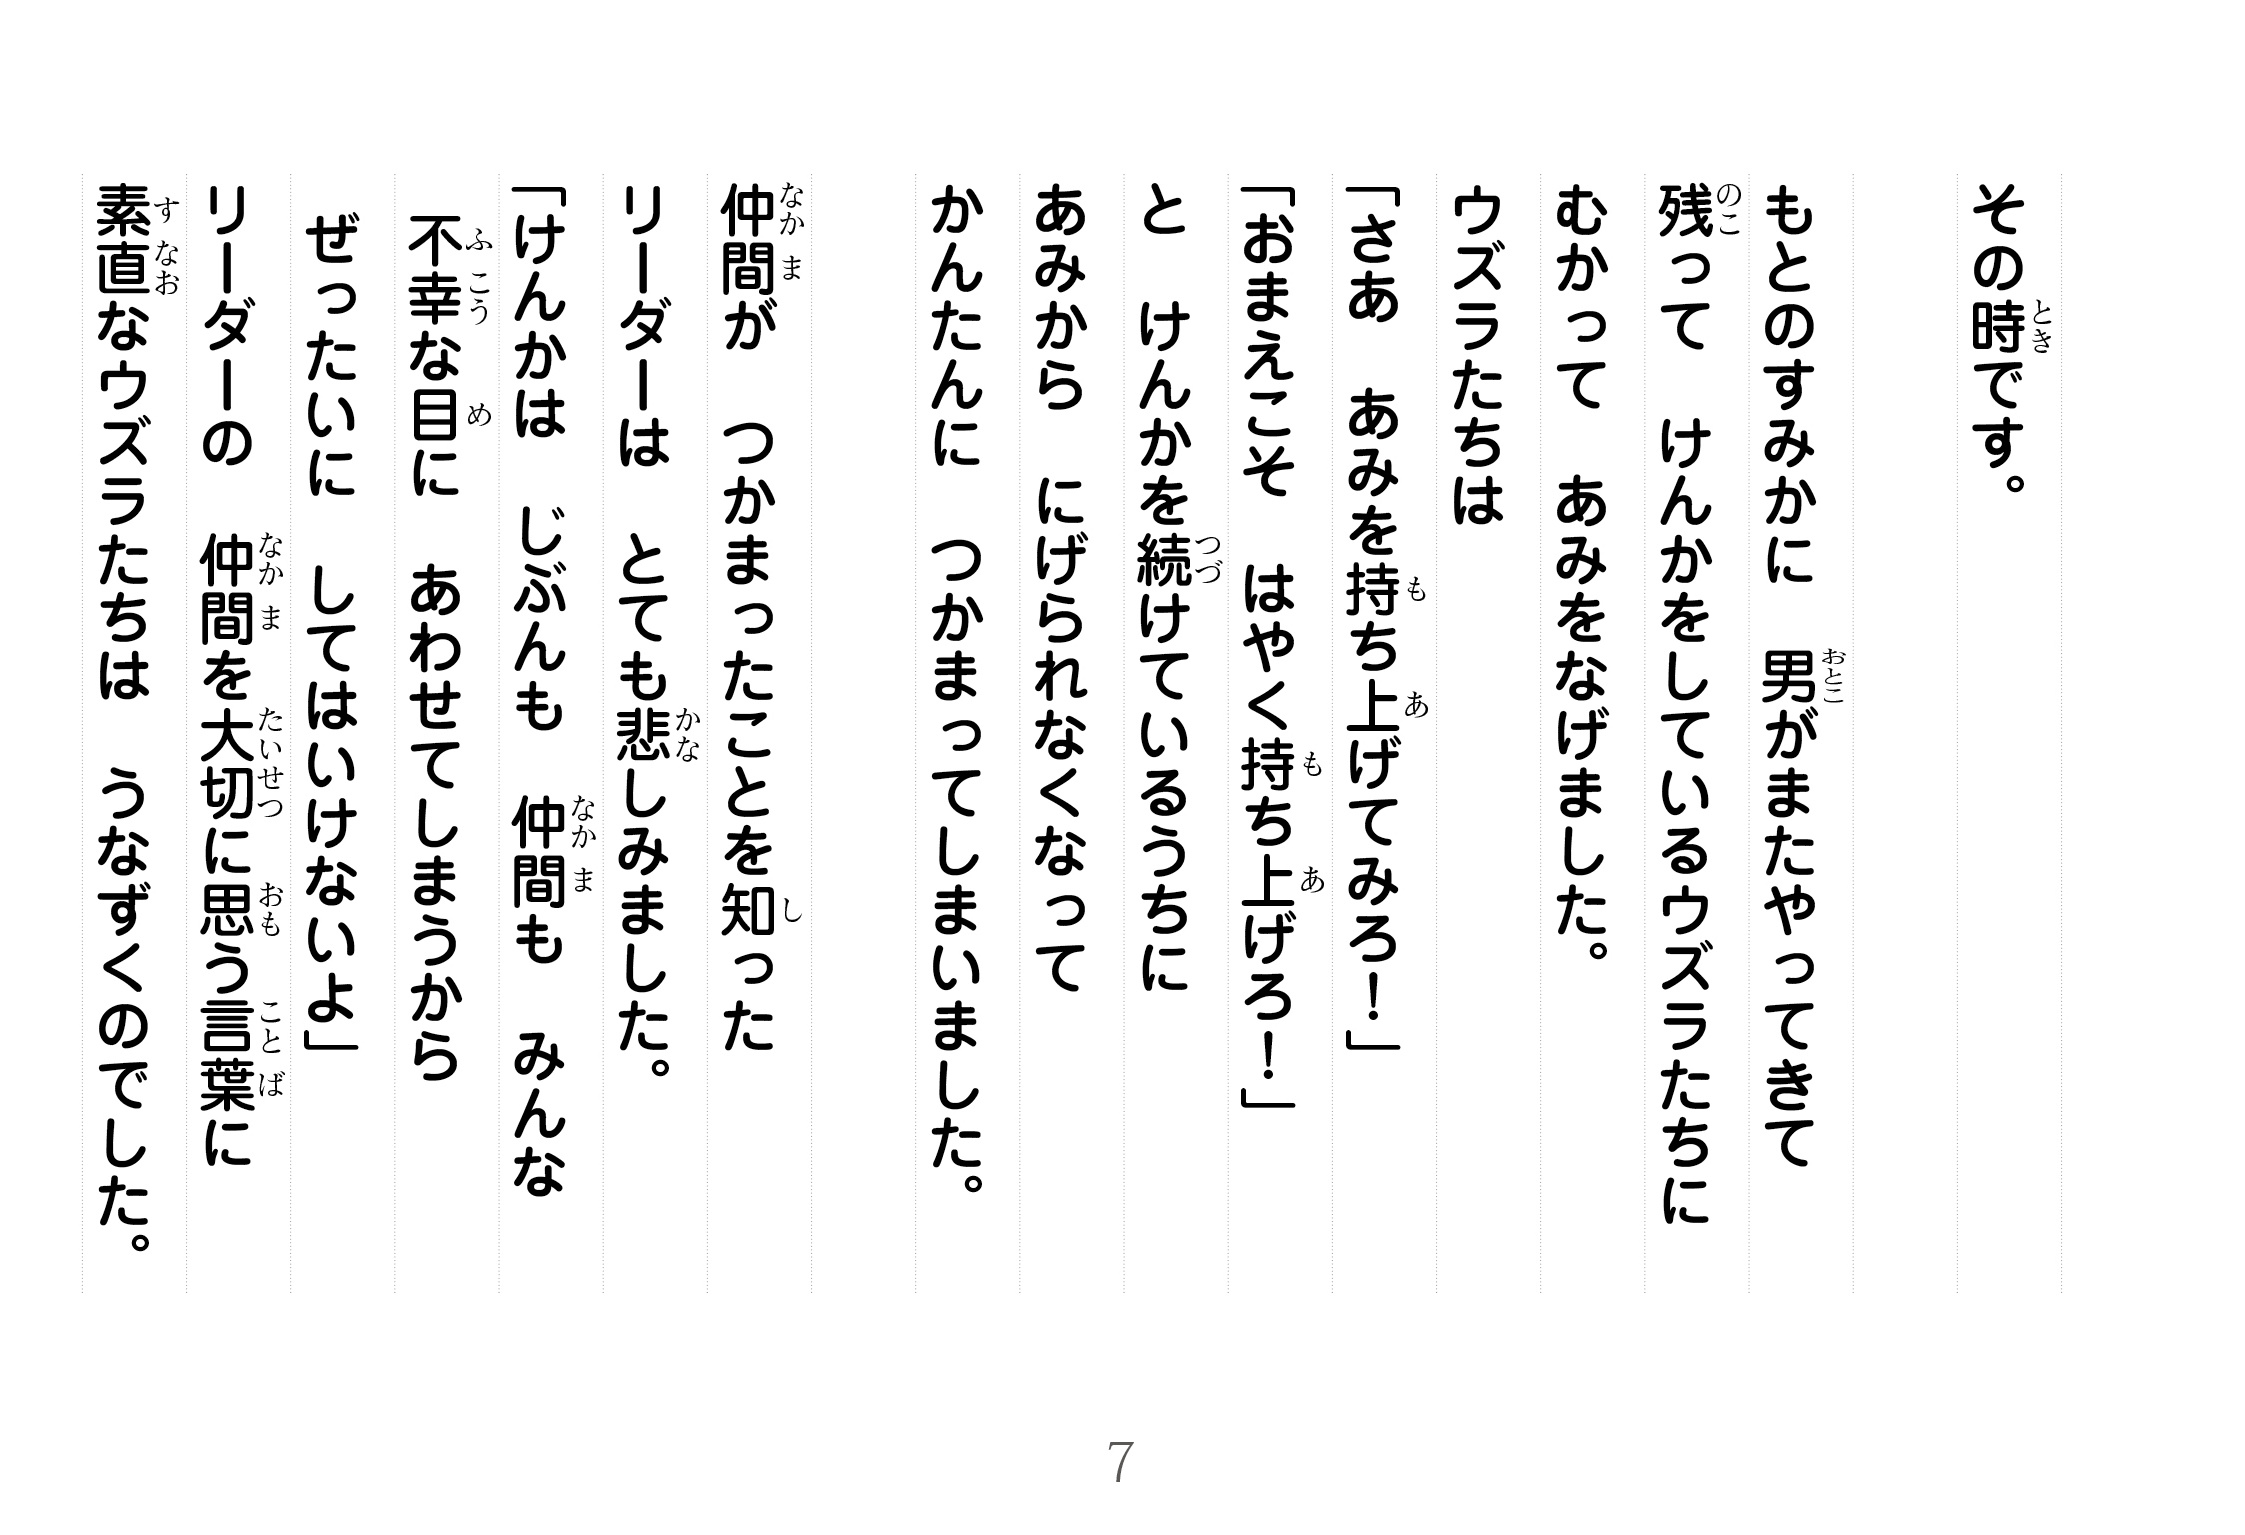 その時です。
もとのすみかに　男がまたやってきて
残って　けんかをしているウズラたちに
むかって　あみをなげました。
ウズラたちは
「さあ　あみを持ち上げてみろ！」
「おまえこそ　はやく持ち上げろ！」
と　けんかを続けているうちに
あみから　にげられなくなって
かんたんに　つかまってしまいました。
仲間が　つかまったことを知った
リーダーは　とても悲しみました。
「けんかは　じぶんも　仲間も　みんな
不幸な目に　あわせてしまうから
ぜったいに　してはいけないよ」
リーダーの　仲間を大切に思う言葉に
素直なウズラたちは　うなずくのでした。
7